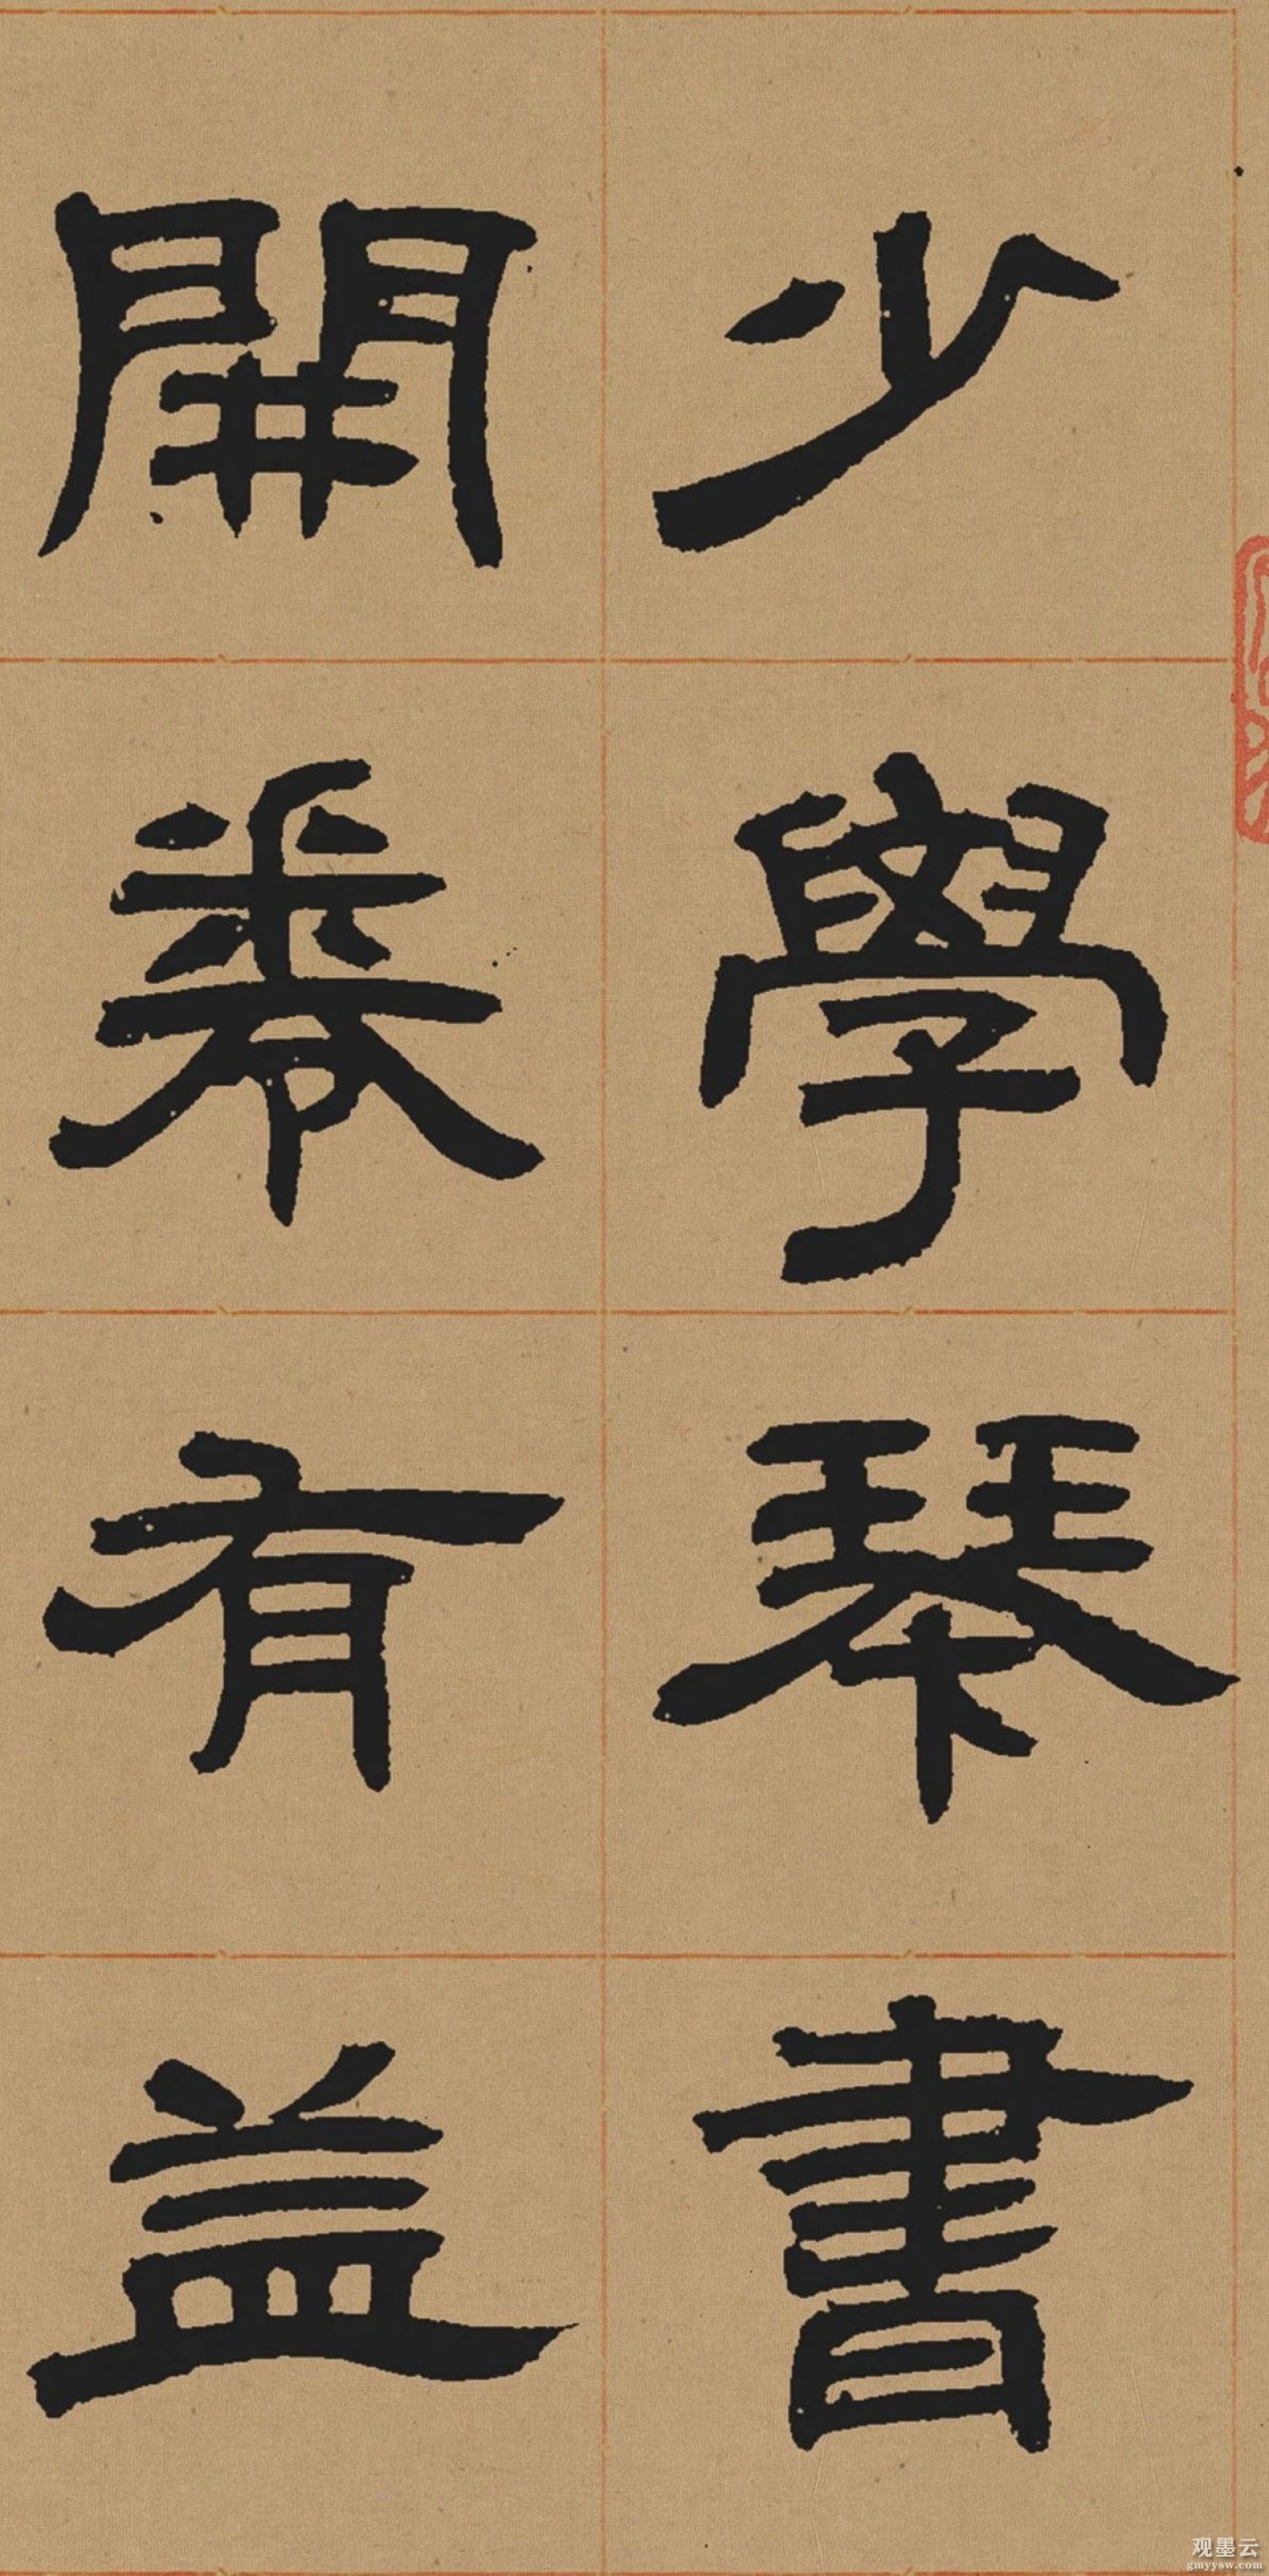 少學琴書
開卷有益
观墨云
gmyysw.com